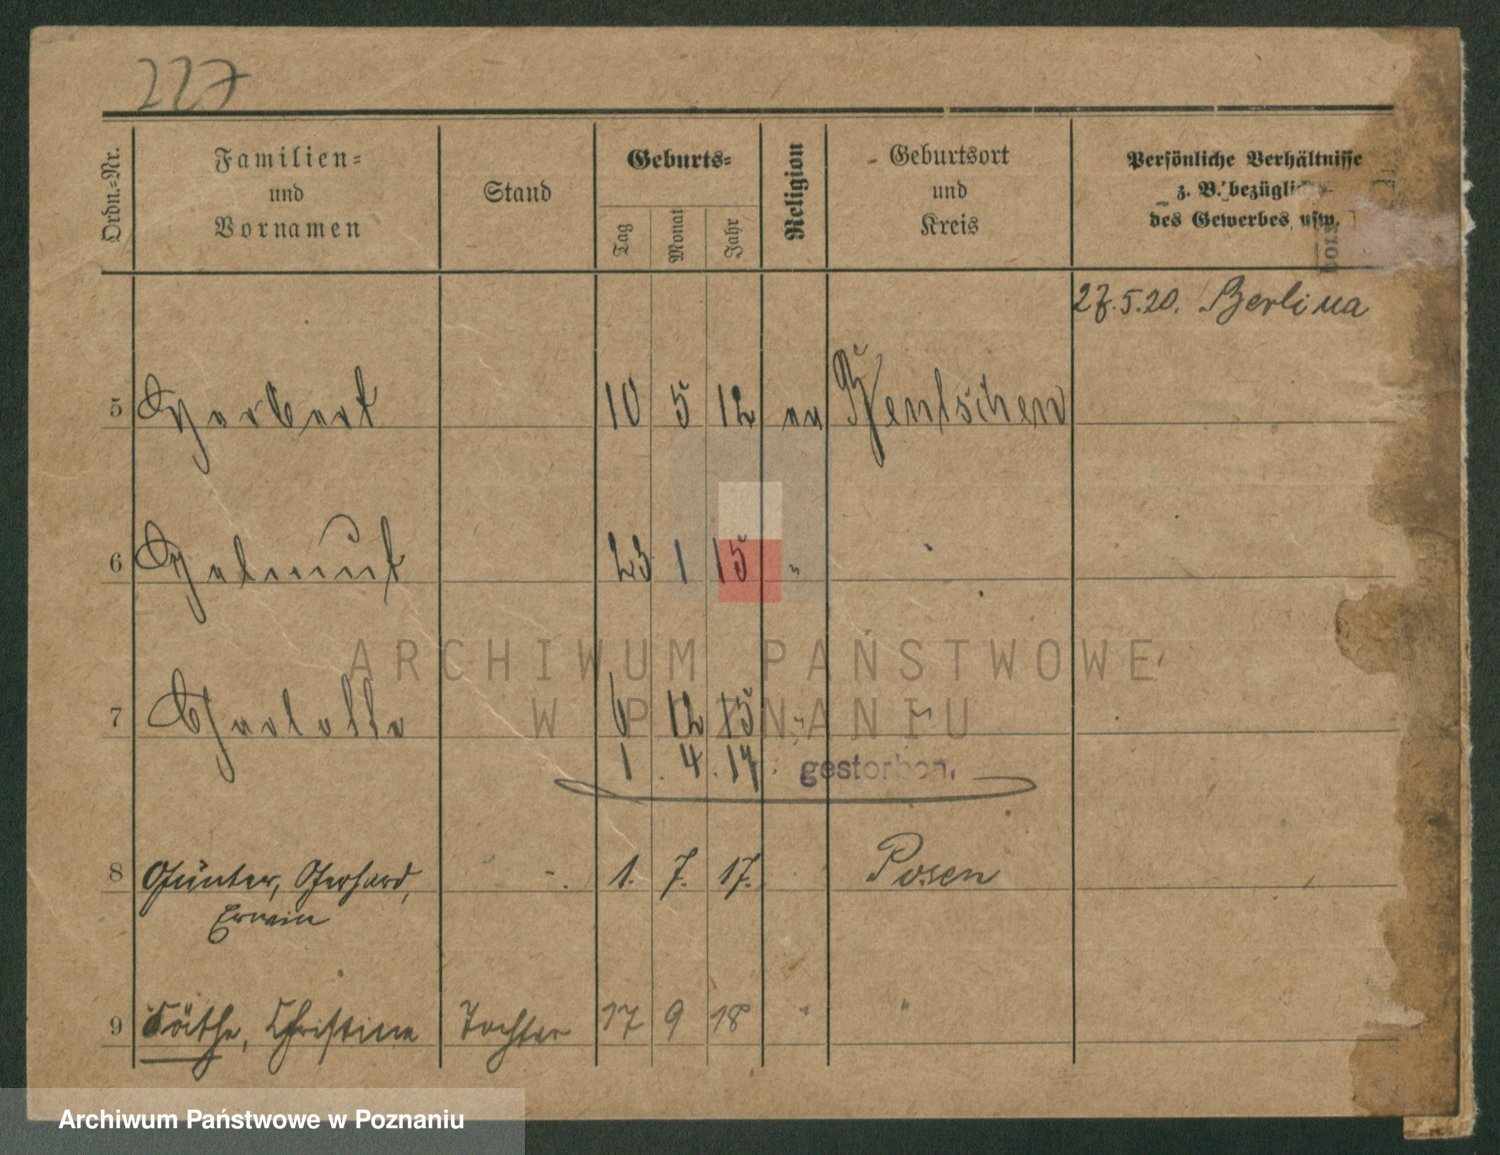 227
Ordn.-Nr.
Familien-
und
Vornamen
Stand
Geburts-
Tag
Monat
Jahr
Religion
Geburtsort
und
Kreis
Persönliche Verhältnisse
z. B. bezüglich
des Gewerbes usw.
27.5.20. Berlina
5 Herbert 10 5 12 ev Bentschen
6 Helmut 23 1 15 " "
7 Charlotte 6 12 15 " "
1. 4. 17. gestorben.
8 Günter, Gerhard, -. 1. 7. 17. Posen
Erwin
9 Käthe, Christine Tochter 17 9 18 " "
ARCHIWUM PAŃSTWOWE
W POZNANIU
Archiwum Państwowe w Poznaniu